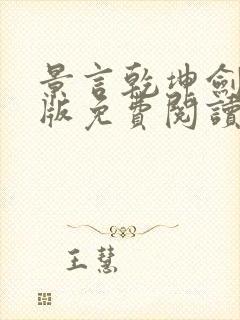 景言乾坤劍
版免費閱讀
王慧